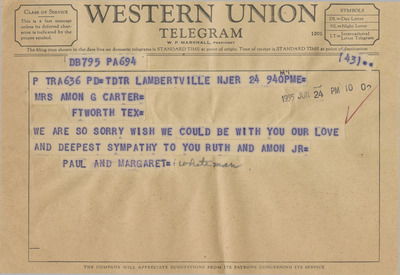 CLASS OF SERVICE
This is a fast message unless its deferred character is indicated by the proper symbol.
WESTERN UNION
TELEGRAM
W. P. MARSHALL, PRESIDENT
1201
SYMBOLS
DL=Day Letter
NL=Night Letter
LT=International Letter Telegram
The filing time shown in the date line on domestic telegrams is STANDARD TIME at point of origin. Time of receipt is STANDARD TIME at point of destination
DB795 PA694
(43)
P TRA636 PD=TDTR LAMBERTVILLE NJER 24 940PME=
1955 JUN 24 PM 10 0
MRS AMON G CARTER=
FTWORTH TEX=
WE ARE SO SORRY WISH WE COULD BE WITH YOU OUR LOVE
AND DEEPEST SYMPATHY TO YOU RUTH AND AMON JR=
PAUL AND MARGARET= (Whiteman
THE COMPANY WILL APPRECIATE SUGGESTIONS FROM ITS PATRONS CONCERNING ITS SERVICE